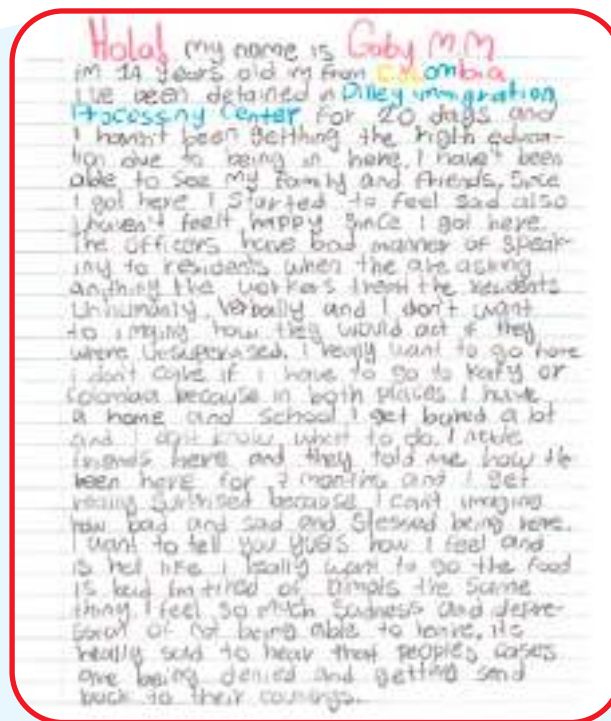 Hola! my name is Gaby M.M
im 14 years old im from Colombia
i've been detained in Dilley immigration
Processing Center for 20 days and
I haven't been getthing the rigth educa-
tion due to being in here, I have't been
able to see my family and friends, Since
I got here I started to feel sad also
I haven't feelt happy since I got here.
The officers have bad manner of speak-
ing to residents when the are asking
anything the workers treat the residents
Unhumanly, verbally and I don't want
to imging how they would act if they
where unsupervised. I really want to go home
i don't care if i have to go to Katy or
Colombia because in both places I have
a home and school I get bored a lot
and I don't know what to do. I made
friends here and they told me how
been here for 7 months and I get
really surprised because I can't imaging
how bad and sad and stessed being here.
I want to tell you how I feel and
is hell like I really want to go the food
is bad I'm tired of the same
thing I feel so much sadness and depre-
of not being able to leave, its
really sad to hear that peoples cases
are being denied and getting send
back to their